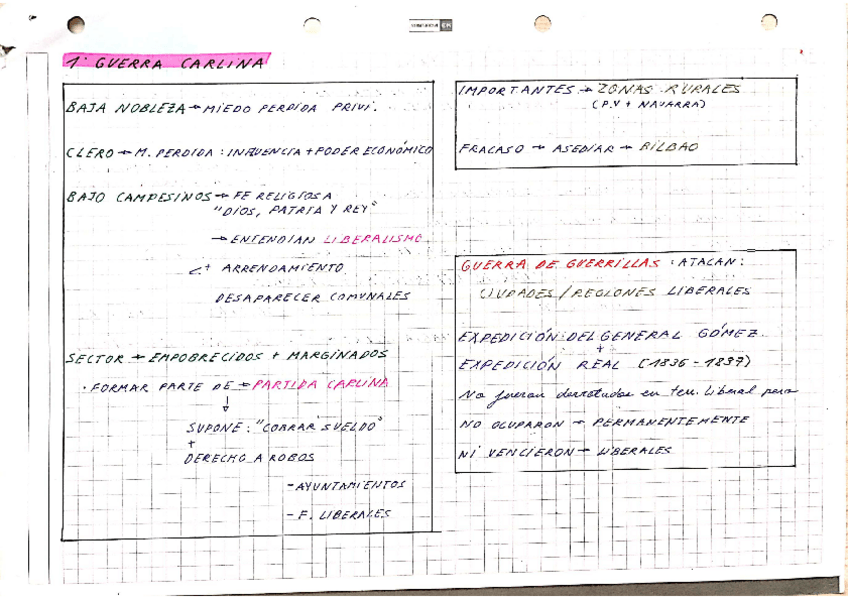 1ª GUERRA CARLINA
BAJA NOBLEZA → MIEDO PERDIDA PRIVI.
CLERO → M. PERDIDA : INFLUENCIA + PODER ECONÓMICO
BAJO CAMPESINOS → FE RELIGIOSA
"DIOS, PATRIA Y REY"
→ ENTENDIAN LIBERALISMO
+ ARRENDAMIENTO
DESAPARECER COMUNALES
SECTOR → EMPOBRECIDOS + MARGINADOS
· FORMAR PARTE DE → PARTIDA CARLINA
↓
SUPONE : "COBRAR SUELDO"
+
DERECHO A ROBOS
- AYUNTAMIENTOS
- F. LIBERALES
IMPORTANTES → ZONAS RURALES
(P.V + NAVARRA)
FRACASO → ASEDIAR → BILBAO
GUERRA DE GUERRILLAS : ATACAN :
CIUDADES / REGIONES LIBERALES
EXPEDICIÓN DEL GENERAL GÓMEZ
+
EXPEDICIÓN REAL (1836 - 1837)
No fueron derrotados en terr. liberal pero
NO OCUPARON → PERMANENTEMENTE
NI VENCIERON → LIBERALES